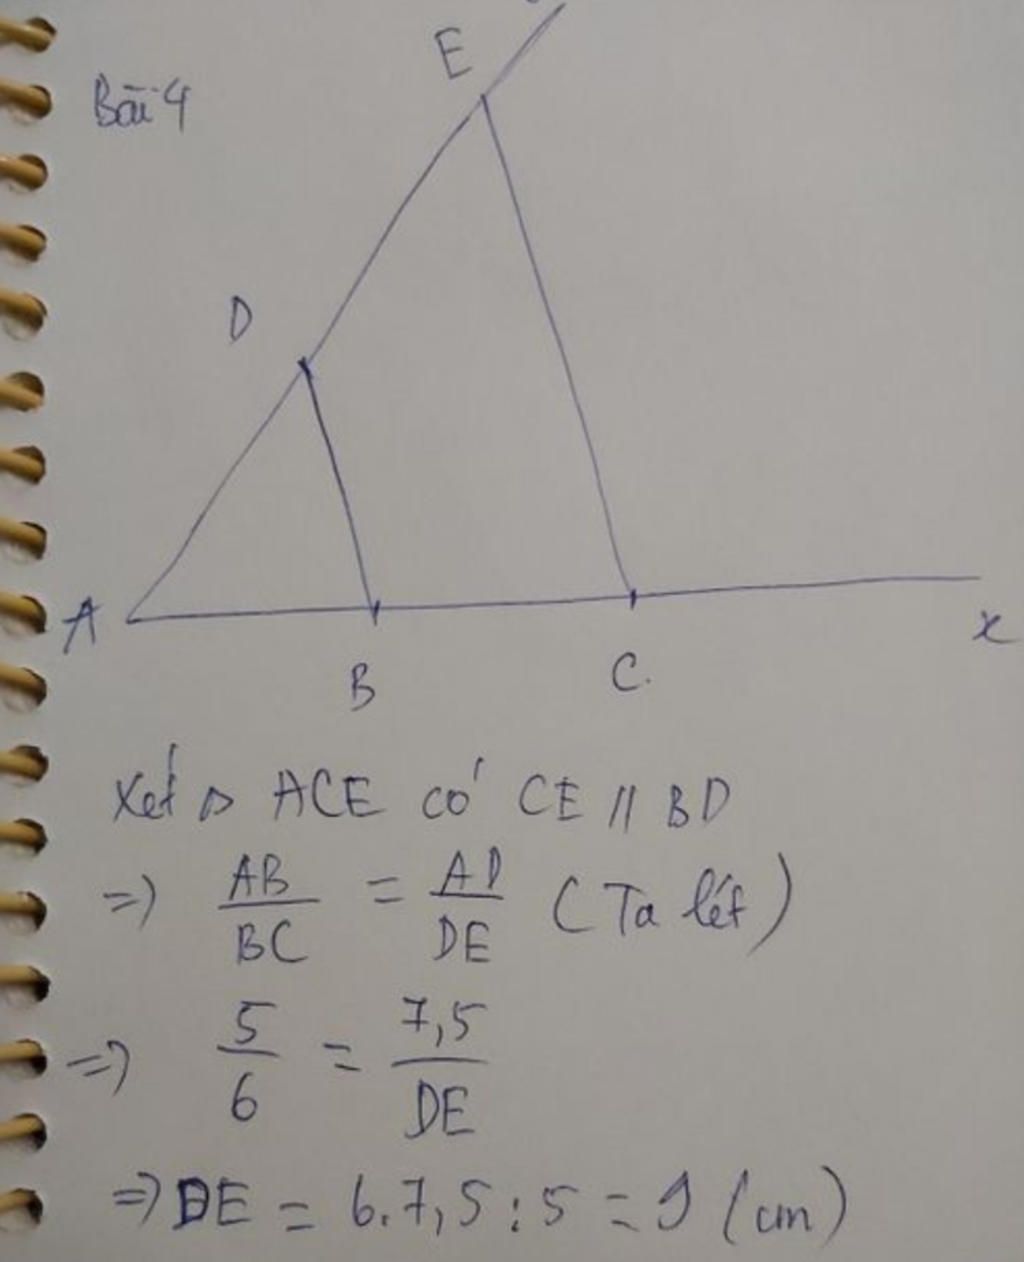 Bài 4
E
D
A
B
C.
x
Xét △ ACE có CE // BD
=> AB/BC = AD/DE (Ta lét)
=> 5/6 = 7,5/DE
=> DE = 6.7,5 : 5 = 9 (cm)